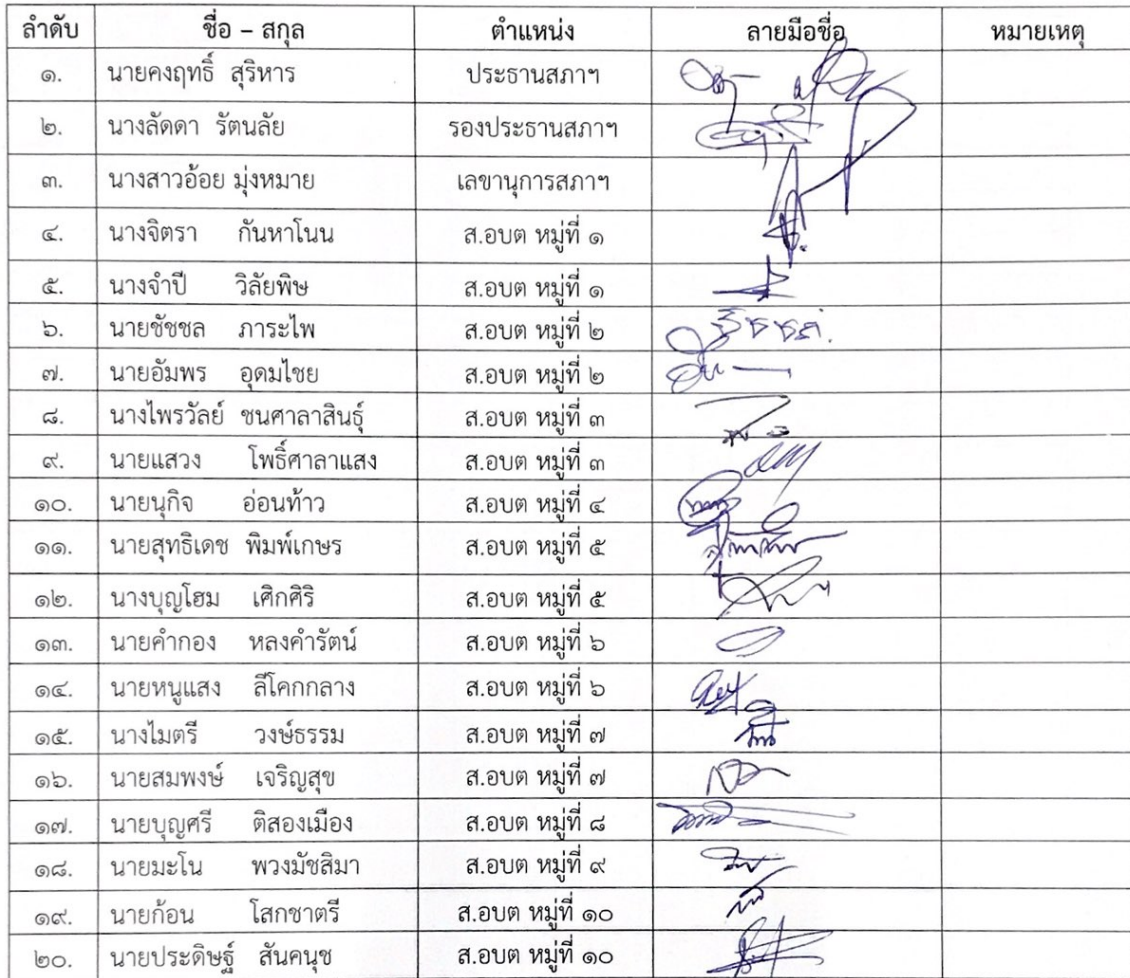 ลำดับ ชื่อ – สกุล ตำแหน่ง ลายมือชื่อ หมายเหตุ
๑. นายคงฤทธิ์ สุริหาร ประธานสภาฯ
๒. นางลัดดา รัตนลัย รองประธานสภาฯ
๓. นางสาวอ้อย มุ่งหมาย เลขานุการสภาฯ
๔. นางจิตรา กันหาโนน ส.อบต หมู่ที่ ๑
๕. นางจำปี วิลัยพิษ ส.อบต หมู่ที่ ๑
๖. นายชัชชล ภาระไพ ส.อบต หมู่ที่ ๒
๗. นายอัมพร อุดมไชย ส.อบต หมู่ที่ ๒
๘. นางไพรวัลย์ ชนศาลาสินธุ์ ส.อบต หมู่ที่ ๓
๙. นายแสวง โพธิ์ศาลาแสง ส.อบต หมู่ที่ ๓
๑๐. นายนุกิจ อ่อนท้าว ส.อบต หมู่ที่ ๔
๑๑. นายสุทธิเดช พิมพ์เกษร ส.อบต หมู่ที่ ๕
๑๒. นางบุญโฮม เศิกศิริ ส.อบต หมู่ที่ ๕
๑๓. นายคำกอง หลงคำรัตน์ ส.อบต หมู่ที่ ๖
๑๔. นายหนูแสง ลีโคกกลาง ส.อบต หมู่ที่ ๖
๑๕. นางไมตรี วงษ์ธรรม ส.อบต หมู่ที่ ๗
๑๖. นายสมพงษ์ เจริญสุข ส.อบต หมู่ที่ ๗
๑๗. นายบุญศรี ติสองเมือง ส.อบต หมู่ที่ ๘
๑๘. นายมะโน พวงมัชสิมา ส.อบต หมู่ที่ ๙
๑๙. นายก้อน โสกชาตรี ส.อบต หมู่ที่ ๑๐
๒๐. นายประดิษฐ์ สันคนุช ส.อบต หมู่ที่ ๑๐